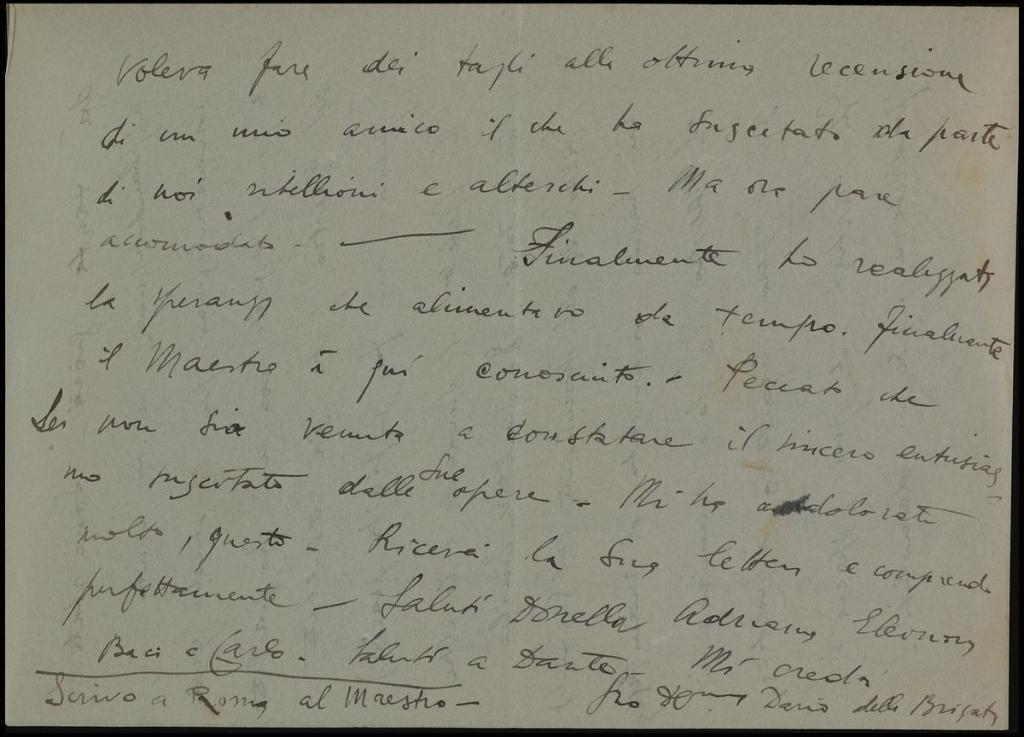 voleva fare dei tagli alla ottima recensione
di un mio amico il che ha suscitato da parte
di noi ribellioni e alterchi - Ma ora pare
accomodato - Finalmente ho realizzato
la speranza che alimentavo da tempo. Finalmente
il Maestro è qui conosciuto. - Peccato che
Lei non sia venuta a constatare il sincero entusias-
mo suscitato dalle Sue opere - Mi ha addolorato
molto, questo - Ricevei la Sua lettera e comprendo
perfettamente - Saluti Donella Adriana Eleonora
Baci a Carlo. Saluti a Dante - Mi creda
Scrivo a Roma al Maestro -
Suo Dario delle